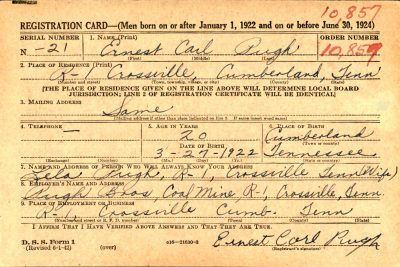 10,857
REGISTRATION CARD—(Men born on or after January 1, 1922 and on or before June 30, 1924)
SERIAL NUMBER 1. NAME (Print) ORDER NUMBER
N -21 Ernest Carl Pugh 10,859
(First) (Middle) (Last)
2. PLACE OF RESIDENCE (Print)
R-1 Crossville, Cumberland, Tenn
(Number and street) (Town, township, village, or city) (County) (State)
[THE PLACE OF RESIDENCE GIVEN ON THE LINE ABOVE WILL DETERMINE LOCAL BOARD
JURISDICTION; LINE 2 OF REGISTRATION CERTIFICATE WILL BE IDENTICAL]
3. MAILING ADDRESS
Same
[Mailing address if other than place indicated on line 2. If same insert word same]
4. TELEPHONE 5. AGE IN YEARS 6. PLACE OF BIRTH
— 20 Cumberland
DATE OF BIRTH (Town or county)
3-27-1922 Tennessee
(Exchange) (Number) (Mo.) (Day) (Yr.) (State or country)
7. NAME AND ADDRESS OF PERSON WHO WILL ALWAYS KNOW YOUR ADDRESS
Lela Pugh, R-1, Crossville, Tenn (Wife)
8. EMPLOYER'S NAME AND ADDRESS
Pugh Bros, Coal Mine R-1, Crossville, Tenn.
9. PLACE OF EMPLOYMENT OR BUSINESS
R-1 Crossville Cumb. Tenn
(Number and street or R. F. D. number) (Town) (County) (State)
I AFFIRM THAT I HAVE VERIFIED ABOVE ANSWERS AND THAT THEY ARE TRUE.
D. S. S. Form 1
(Revised 6-1-42) (over) 16—21630-2 Ernest Carl Pugh
(Registrant's signature)